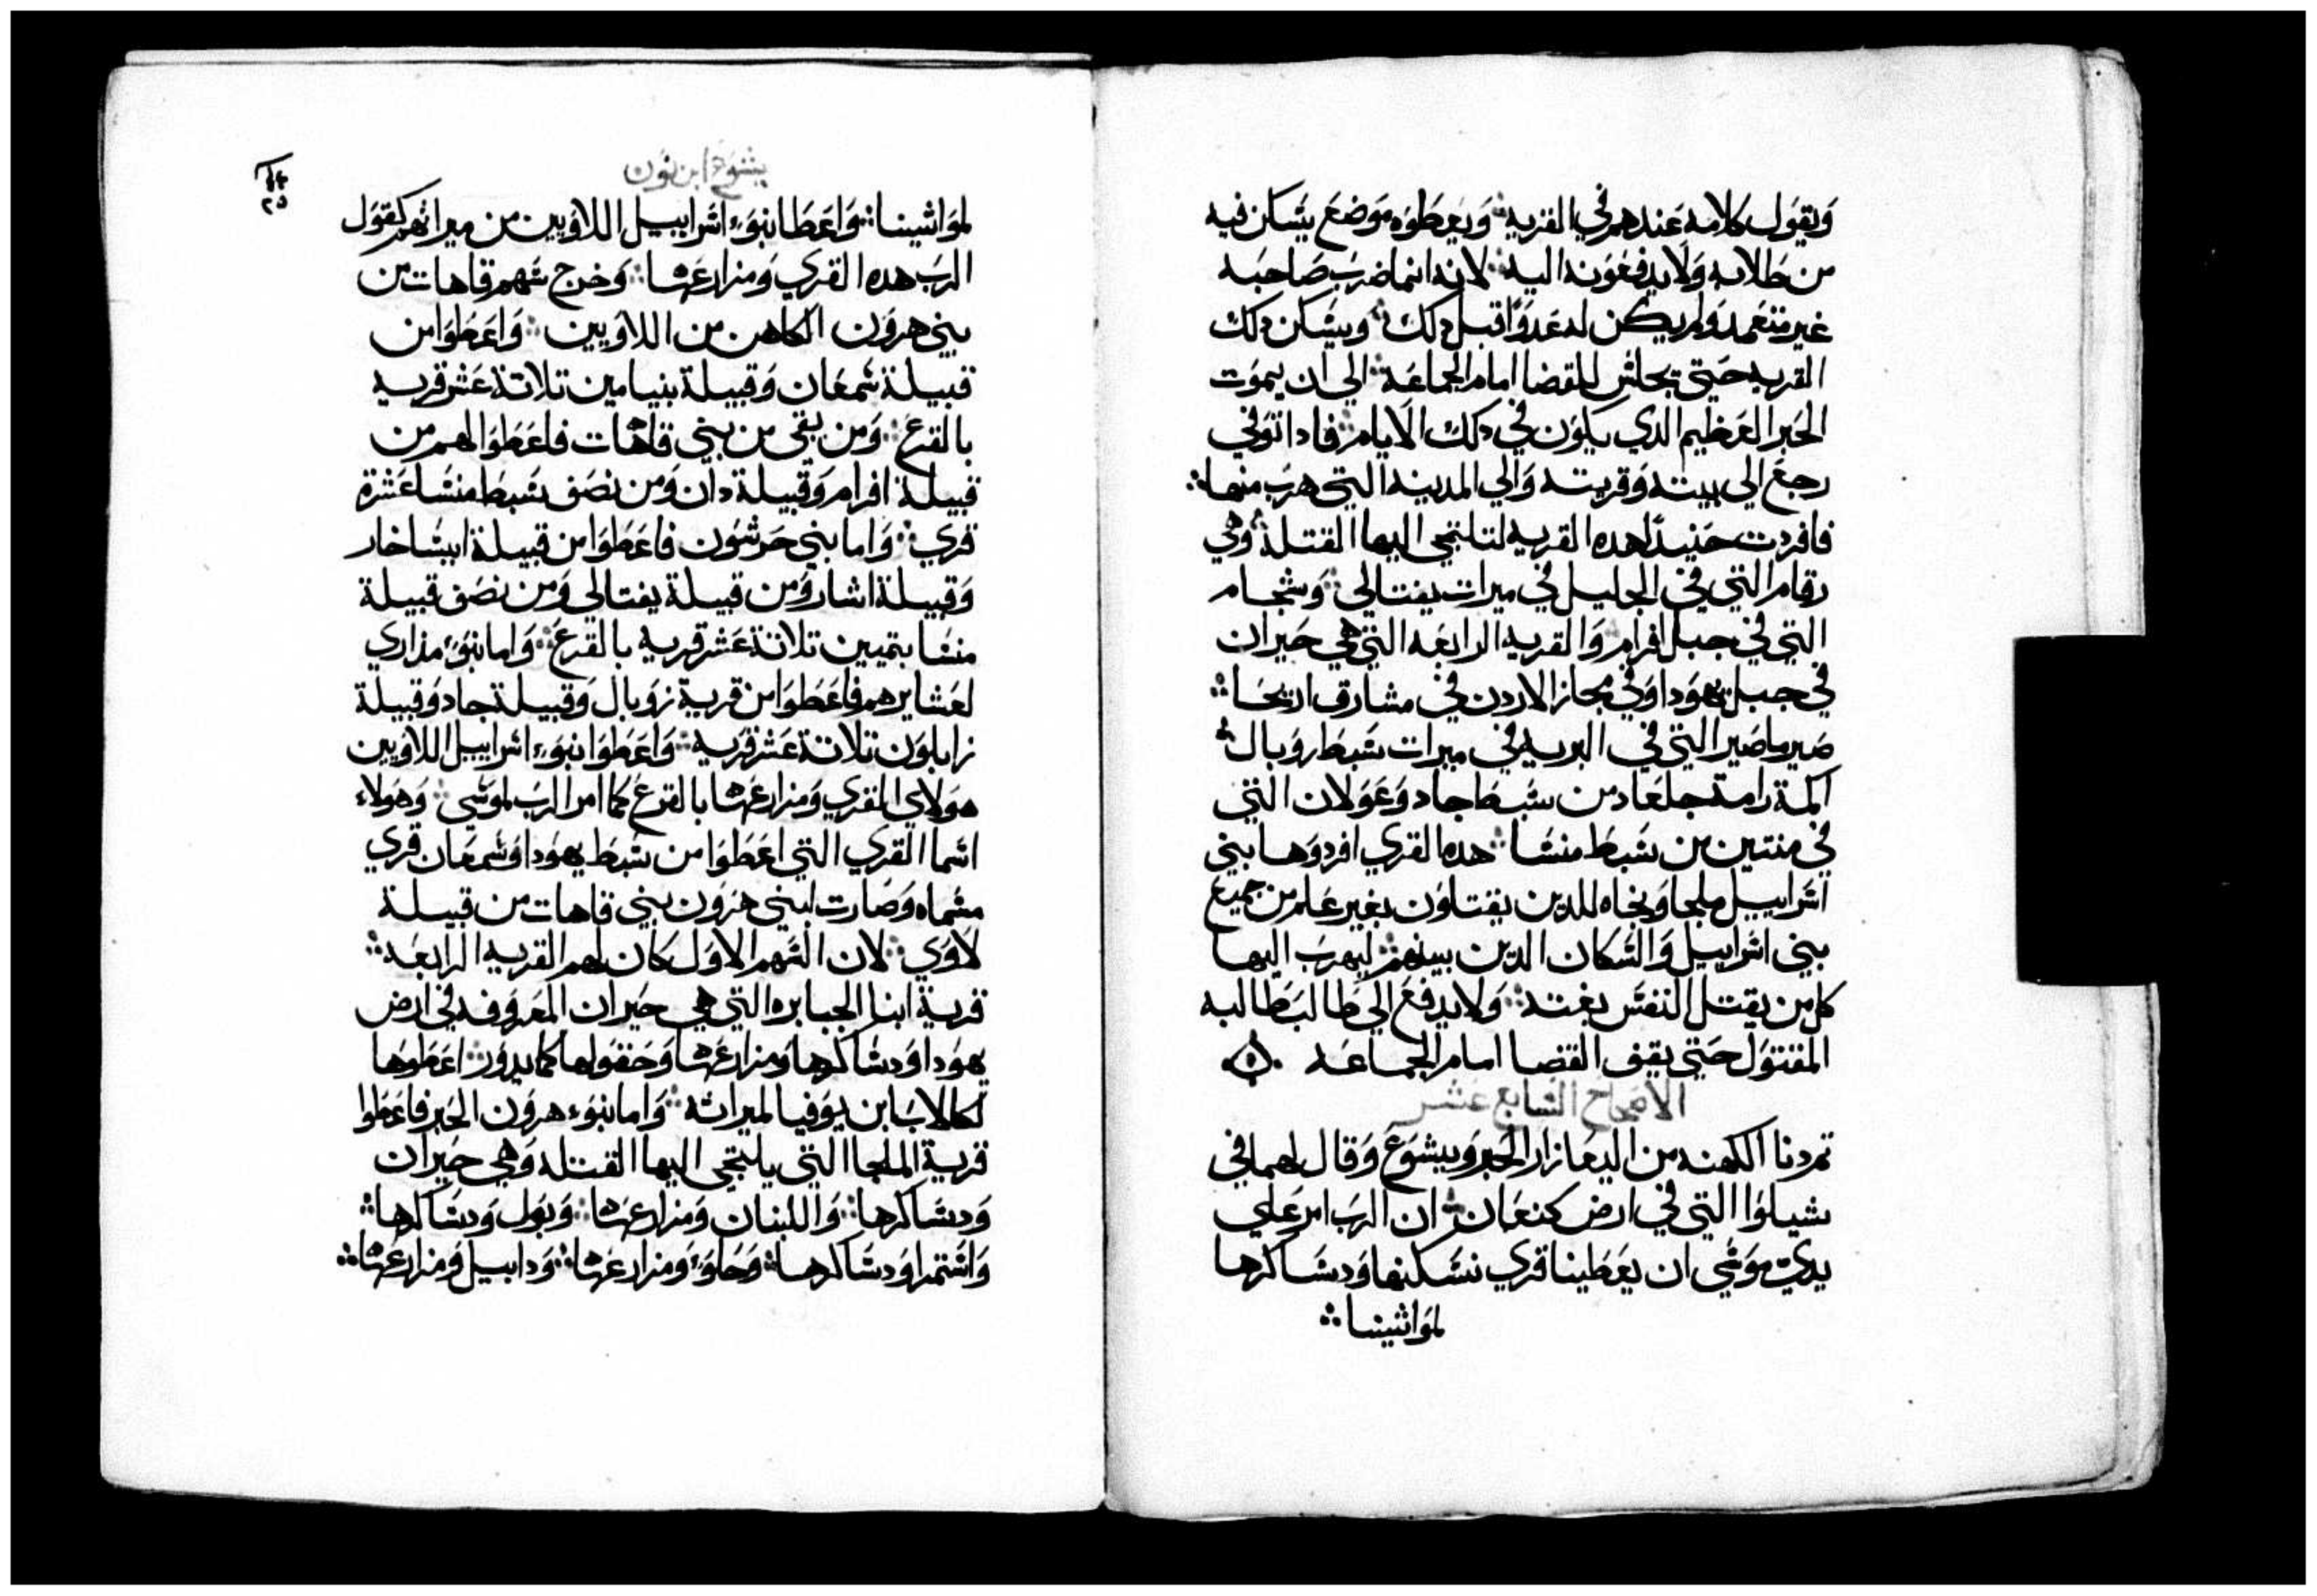 ويقول كلامه عندهم في القريه ويعطوه موضع يسكن فيه
من طلابه ولا يدفعونه اليه لانه انما ضرب صاحبه
غير متعمد ولم يكن له عدوا قبل دلك ويسكن دلك
القريه حتي يجلس للقضا امام الجماعة الي ان يموت
الحبر العظيم الدي يكون في دلك الايام فادا توفي
رجع الي بيته وقريته والي المدينه التي هرب منها
فافردت حنيد لهده القريه لتلتجي اليها القتلة وهي
رقام التي في الجليل في ميرات يفتالي وشجام
التي في جبل افرام والقريه الرابعه التي هي حيران
في جبل يهودا وفي مجاز الاردن في مشارق اريحا
صير ماصير التي في البريه في ميرات سبط روبال
اكمة رامة جلعاد من سبط جاد وعولان التي
في منتين من سبط منسا هده القري افردوها بني
اسراييل ملجا ونجاه للدين يقتلون بغير علم من جميع
بني اسراييل والسكان الدين بينهم ليهرب اليها
كل من يقتل النفس بغتة ولا يدفع الي طالب طالبه
المقتول حتي يقف القضا امام الجماعه
الاصحاح السابع عشر
تم دنا الكهنه من اليعازار الحبر ويشوع وقال لهما في
شيلوا التي في ارض كنعان ان الرب امر علي
يدي موسي ان يعطينا قري نسكنها ودساكرها
لمواشينا
يشوع ابن نون
٢٥
لمواشينا واعطا بنوء اسراييل اللاويين من ميراثهم كقول
الرب هده القري ومزارعها وخرج سهم قاهات من
بني هرون الكاهن من اللاويين واعطوا من
قبيلة شمعان وقبيلة بنيامين تلاتة عشر قريه
بالقرع ومن بقي من بني قاهات فاعطوا لهم من
قبيلة افرام وقبيلة دان ومن نصف سبط منسا عشرة
قري واما بني حرشون فاعطوا من قبيلة ايساخار
وقبيلة اشار ومن قبيلة يفتالي ومن نصف قبيلة
منسا بتميين تلاتة عشر قريه بالقرع واما بنوء مذاري
لعشايرهم فاعطوا من قرية زوبال وقبيلة جاد وقبيلة
زابلون تلاتة عشر قريه واعطوا بنوء اسراييل اللاويين
هولاي القري ومزارعها بالقرع كما امر الرب لموسي وهولاء
اسما القري التي اعطوا من سبط يهودا وشمعان قري
مسماه وصارت لبني هرون بني قاهات من قبيلة
لاوي لان السهم الاول كان لهم القريه الرابعه
قرية ابنا الجبابره التي هي حيران المعروفه في ارض
يهودا ودساكرها ومزارعها وحقولها كما يدور اعطوها
لكالاب ابن يوفيا لميراثه واما بنوء هرون الحبر فاعطوا
قرية الملجا التي يلتجي اليها القتله وهي حيران
ودساكرها واللبنان ومزارعها وبول ودساكرها
واشتمرا ودساكرها وحاوء ومزارعها ودابيل ومزارعها